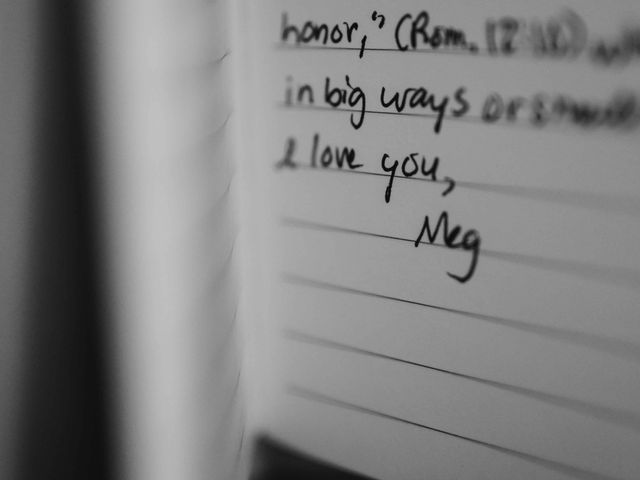 honor," (Rom. 12:10)
in big ways or small
I love you,
Meg